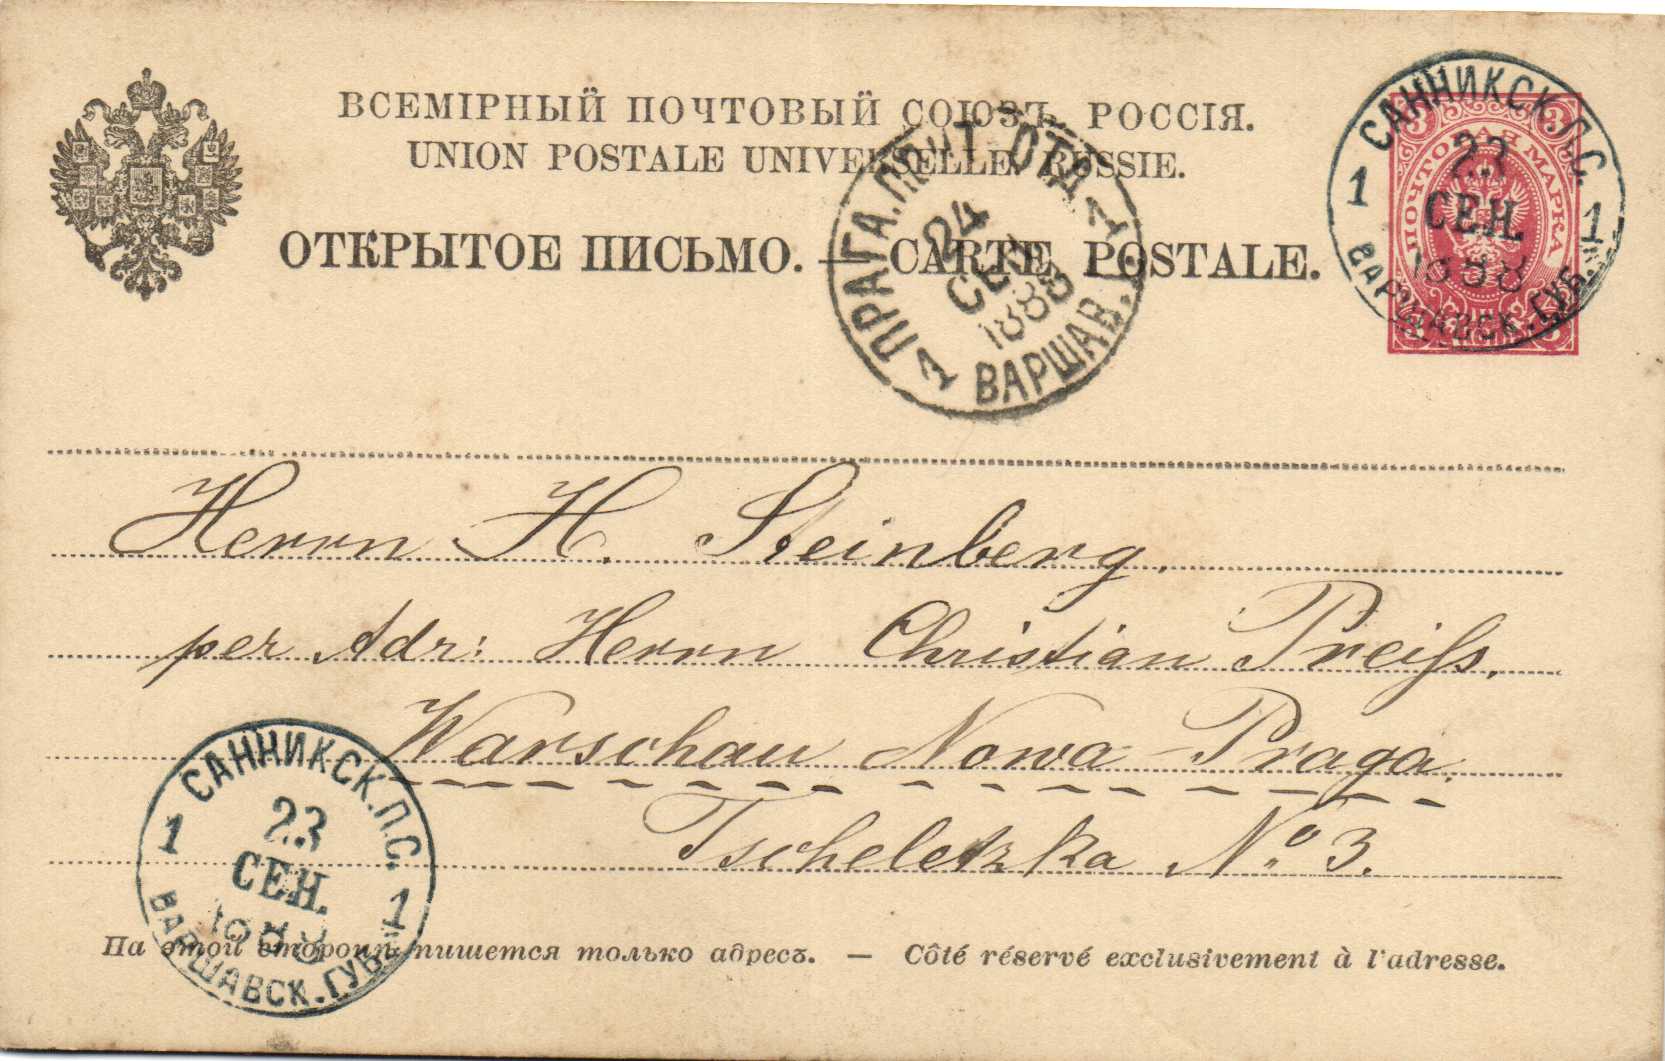 ВСЕМІРНЫЙ ПОЧТОВЫЙ СОЮЗЪ. РОССІЯ.
UNION POSTALE UNIVERSELLE. RUSSIE.
ОТКРЫТОЕ ПИСЬМО. — CARTE POSTALE.
ПОЧТОВАЯ МАРКА
3 3
3 3
САННИКСК.П.С.
1 23 1
СЕН.
1888
ВАРШАВСК.ГУБ.
ПРАГА.ПОЧТ.ОТД.
1 24 1
СЕН
1888
ВАРШАВ.Г.
Herrn H. Steinberg.
per Adr: Herrn Christian Preiſs,
Warschau Nowa-Praga.
Tscheletzka No 3.
САННИКСК.П.С.
1 23 1
СЕН.
1888
ВАРШАВСК.ГУБ.
На этой сторонѣ пишется только адресъ. — Côté réservé exclusivement à l'adresse.